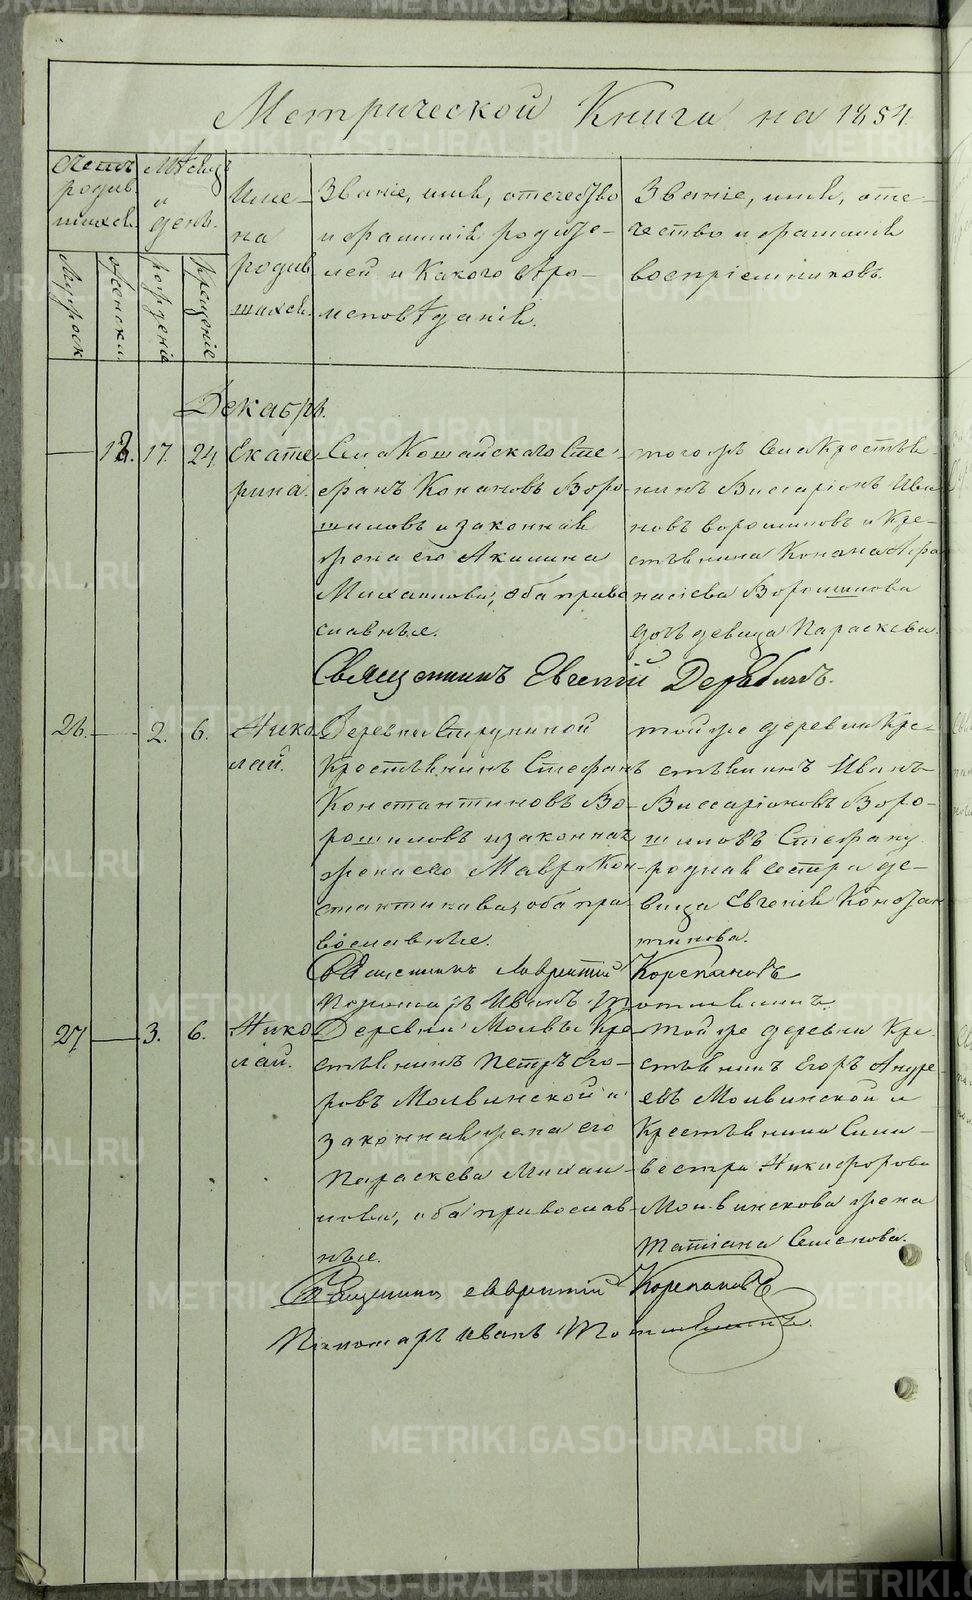 Метрической Книги на 1854
Счетъ родившихся.
Мѣсяцъ и день.
Имена родившихся.
Званіе, имя, отечество
и фамилія родите-
лей и какого вѣро-
исповѣданія.
Званіе, имя, оте-
чество и фамилія
воспріемниковъ.
Мужеск
женска.
рожденіе
крещеніе
Декабрь.
12. 17. 24. Екате-
рина.
Села Кошайскаго Сте-
фанъ Конановъ Воро-
шиловъ и законная
жена его Акилина
Михаилова, оба право
славные.
того жъ Села Крестья-
нинъ Виссаріонъ Ива
новъ Ворошиловъ и Кре-
стьянина Конана Афа
насіева Ворошилова
дочь девица Параскева.
Священникъ Евгеній Дерябинъ.
26. 2. 6. Нико
лай.
Деревни
Крестьянинъ Стефанъ
Константиновъ Во-
рошиловъ и законная
жена его Мавра Кон-
стантинова, оба пра
вославные.
той же деревни Кре-
стьянинъ Иванъ
Виссаріоновъ Воро-
шиловъ Стефану
родная сестра де-
вица Евгенія Констан
тинова.
Священникъ Лаврентій Корепановъ
Пономарь Иванъ
27. 3. 6. Нико
лай.
Деревни Молвы Кре
стьянинъ Петръ Его-
ровъ Молвинской и
законная жена его
Параскева Михаи-
лова, оба православ-
ные.
той же деревни Кре-
стьянинъ Егоръ Андре-
евъ Молвинской и
Крестьянина Силь-
вестра Никифорова
Молвинскова жена
Татіана Семенова.
Священникъ Лаврентій Корепановъ
Пономарь Иванъ
METRIKI.GASO-URAL.RU